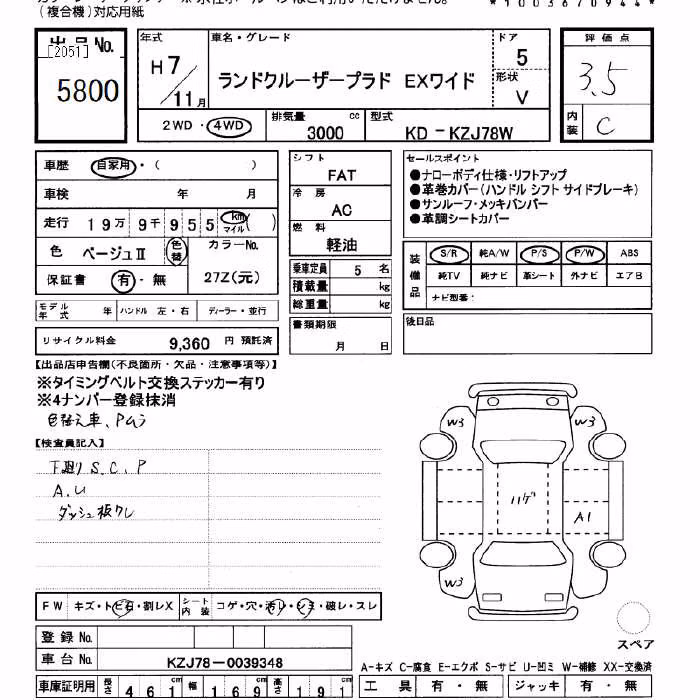 (複合機)対応用紙
*1003670944*
出品No.
[2051]
5800
年式
H7/11月
車名・グレード
ランドクルーザープラド EXワイド
ドア
5
形状
V
評価点
3.5
内装
C
2WD・4WD
排気量
3000 cc
型式
KD-KZJ78W
車歴 自家用・( )
車検 年 月
走行 19万9千955 km マイル ( )
色 ベージュⅡ 色替 カラーNo.
保証書 有・無 27Z(元)
モデル年式 年 ハンドル 左・右 ディーラー・並行
リサイクル料金 9,360 円 預託済
シフト
FAT
冷房
AC
燃料
軽油
乗車定員 5 名
積載量 kg
総重量 kg
書類期限
月 日
セールスポイント
●ナローボディ仕様・リフトアップ
●革巻カバー(ハンドル シフト サイドブレーキ)
●サンルーフ・メッキバンパー
●革調シートカバー
装備品
S/R 純A/W P/S P/W ABS
純TV 純ナビ 革シート 外ナビ エアB
ナビ型番:
後日品
【出品店申告欄(不良箇所・欠品・注意事項等)】
※タイミングベルト交換ステッカー有り
※4ナンバー登録抹消
色替え車、PMう
【検査員記入】
下廻り S.C.P
A.U
ダッシュ板ワレ
W3 W3
ハゲ
A1
W3 W3
スペア
FW キズ・トビ石・割レX シート内装 コゲ・穴・汚レ・シミ・破レ・スレ
登録No.
車台No. KZJ78-0039348
車庫証明用 長さ 461cm 幅 169cm 高さ 191cm
A-キズ C-腐食 E-エクボ S-サビ U-凹ミ W-補修 XX-交換済
工具 有・無 ジャッキ 有・無